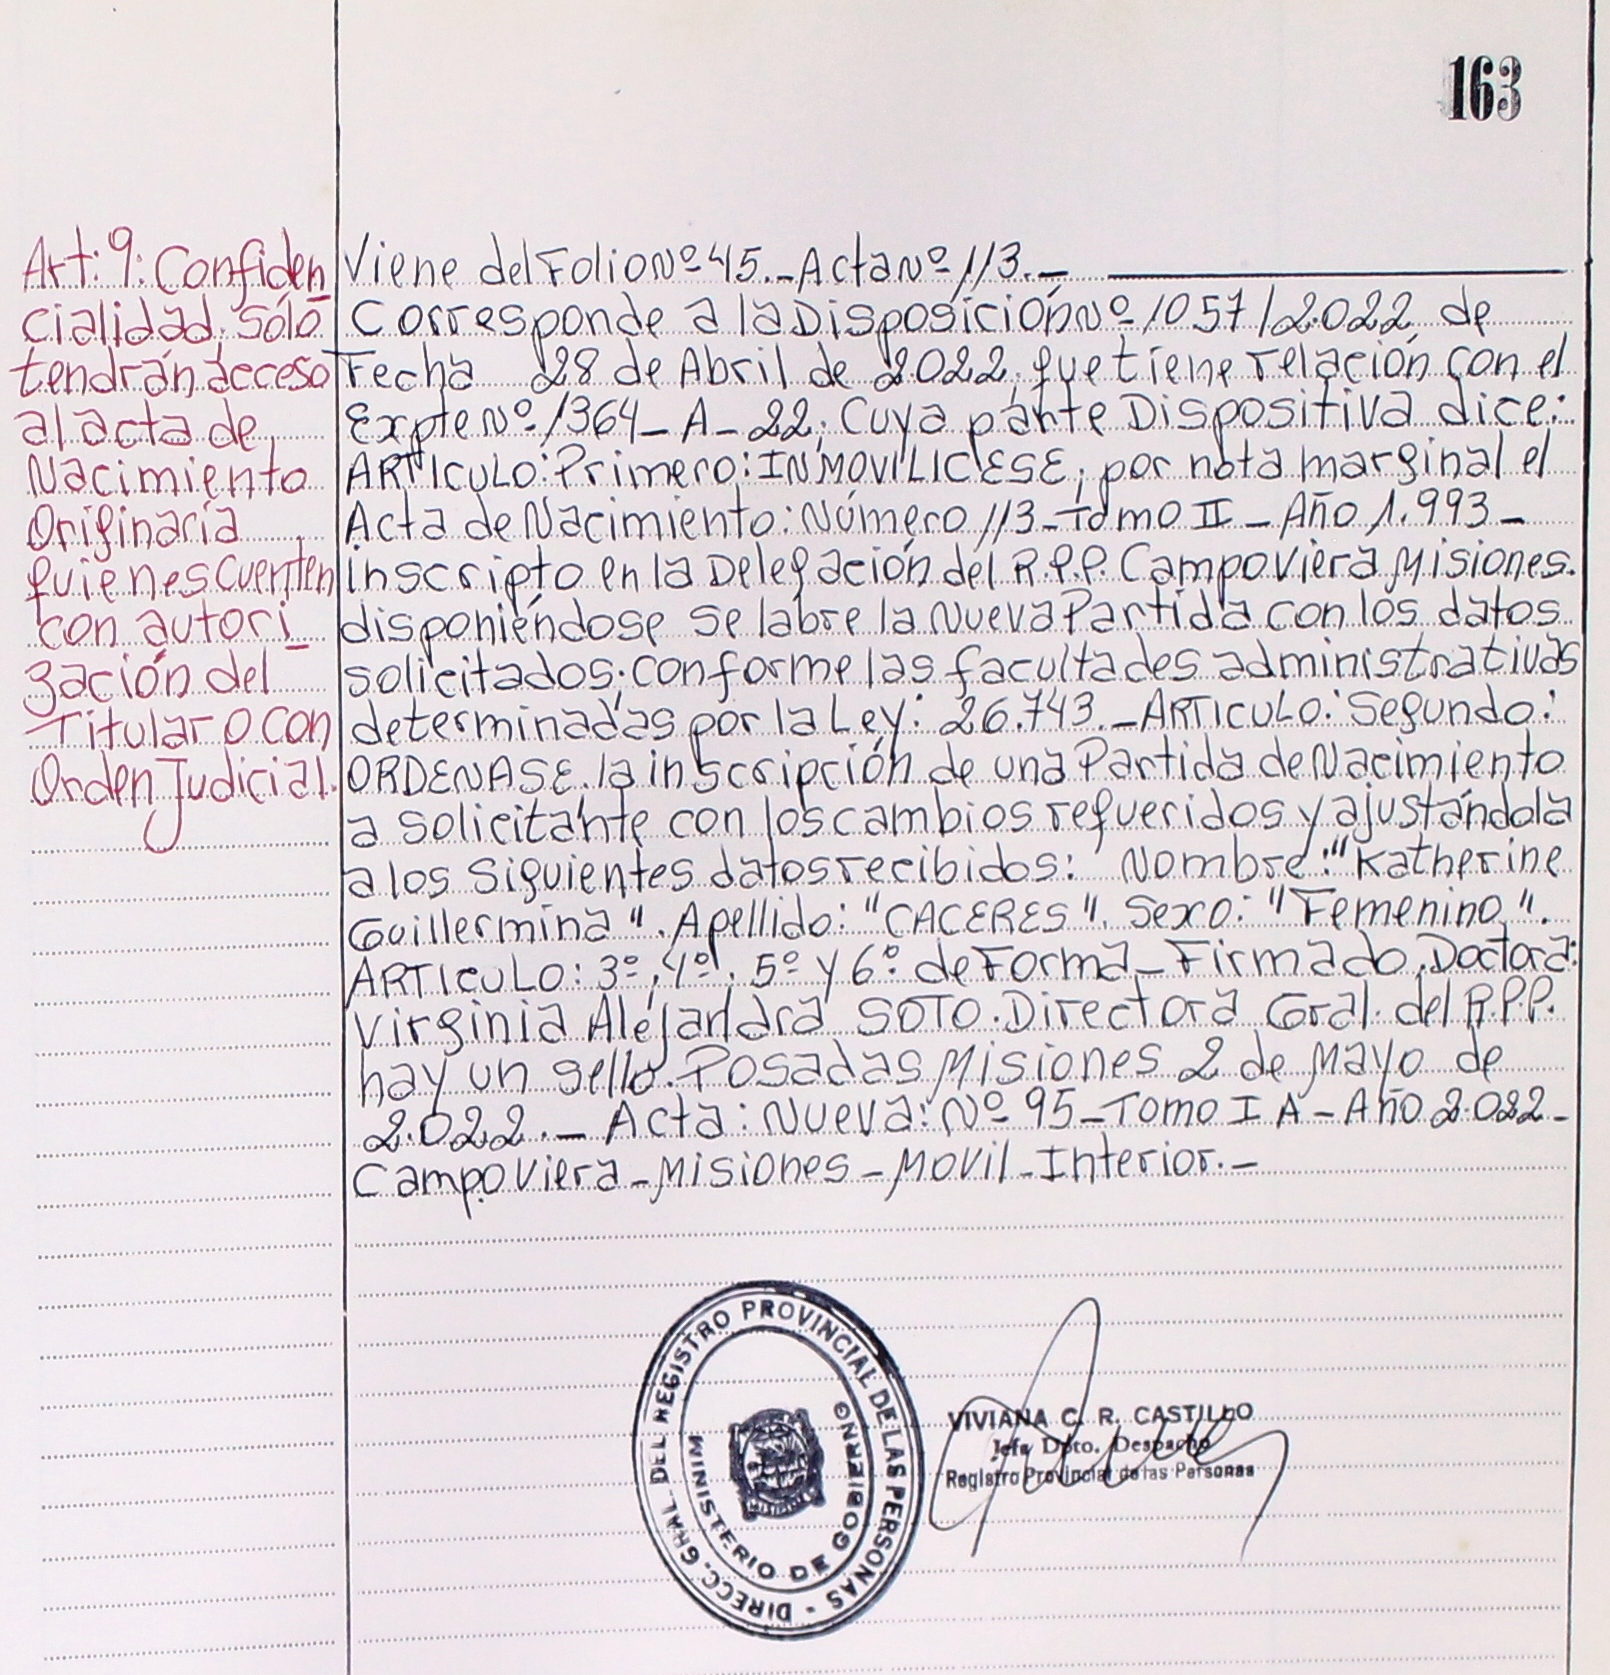 163
Art: 9: Confiden
cialidad. sólo
tendrán acceso
al acta de
Nacimiento
Originaria
quienes cuenten
con autori
zación del
Titular o con
Orden Judicial.
Viene del Folio Nº 45._Acta Nº 113._
Corresponde a la Disposición Nº 1057/2.022 de
Fecha 28 de Abril de 2022, que tiene relación con el
Expte Nº 1364_A_22, Cuya parte Dispositiva dice:
ARTICULO: Primero: INMOVILICESE, por nota marginal el
Acta de Nacimiento: Número 113_Tomo II_Año 1.993_
inscripto en la Delegación del R.P.P. Campo Viera Misiones.
disponiéndose se labre la Nueva Partida con los datos
solicitados, conforme las facultades administrativas
determinadas por la Ley: 26.743._ARTICULO: Segundo:
ORDENASE la inscripción de una Partida de Nacimiento
a solicitante con los cambios requeridos y ajustándola
a los siguientes datos recibidos: Nombre: "Katherine
Guillermina". Apellido: "CACERES". Sexo: "Femenino".
ARTICULO: 3º, 4º, 5º y 6º de Forma_Firmado, Doctora:
Virginia Alejandra SOTO. Directora Gral. del R.P.P.
hay un sello. Posadas Misiones 2 de Mayo de
2.022._Acta: Nueva: Nº 95_Tomo I A_Año 2.022_
Campo Viera_Misiones_Movil_Interior._
DIRECC. GRAL. DEL REGISTRO PROVINCIAL DE LAS PERSONAS -
MINISTERIO DE GOBIERNO
VIVIANA C. R. CASTILLO
Jefa Dpto. Despacho
Registro Provincial de las Personas